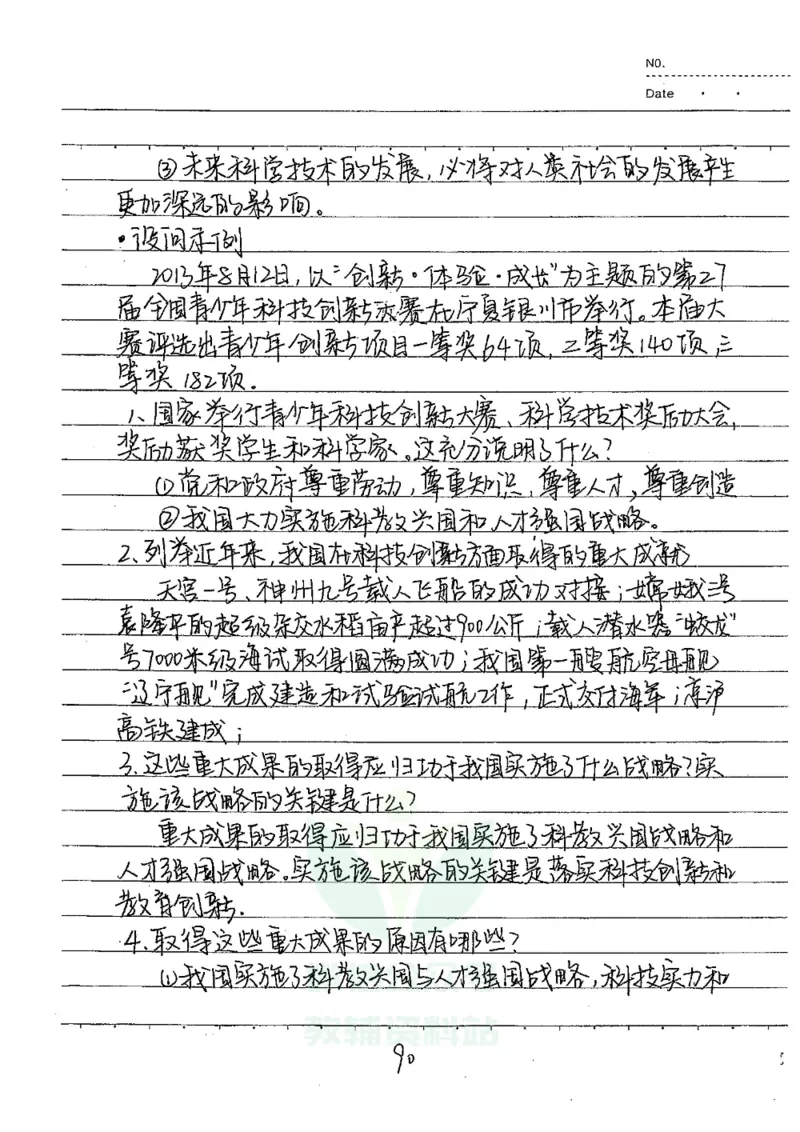 No.
Date
③未来科学技术的发展，必将对人类社会的发展产生
更加深远的影响。
·设问示例
2013年8月12日，以“创新·体验·成长”为主题的第27
届全国青少年科技创新大赛在宁夏银川市举行。本届大
赛评选出青少年创新项目一等奖64项，二等奖140项，三
等奖182项。
1、国家举行青少年科技创新大赛、科学技术奖励大会，
奖励获奖学生和科学家。这充分说明了什么？
①党和政府尊重劳动，尊重知识，尊重人才，尊重创造
②我国大力实施科教兴国和人才强国战略。
2、列举近年来，我国在科技创新方面取得的重大成就
天宫一号、神州九号载人飞船的成功对接；嫦娥三号
袁隆平的超级杂交水稻亩产超过900公斤；载人潜水器“蛟龙”
号7000米级海试取得圆满成功；我国第一艘航空母舰
“辽宁舰”完成建造和试验试航工作，正式交付海军；京沪
高铁建成；
3.这些重大成果的取得应归功于我国实施了什么战略？实
施该战略的关键是什么？
重大成果的取得应归功于我国实施了科教兴国战略和
人才强国战略。实施该战略的关键是落实科技创新和
教育创新.
4.取得这些重大成果的原因有哪些？
①我国实施了科教兴国与人才强国战略，科技实力和
教辅资料站
90